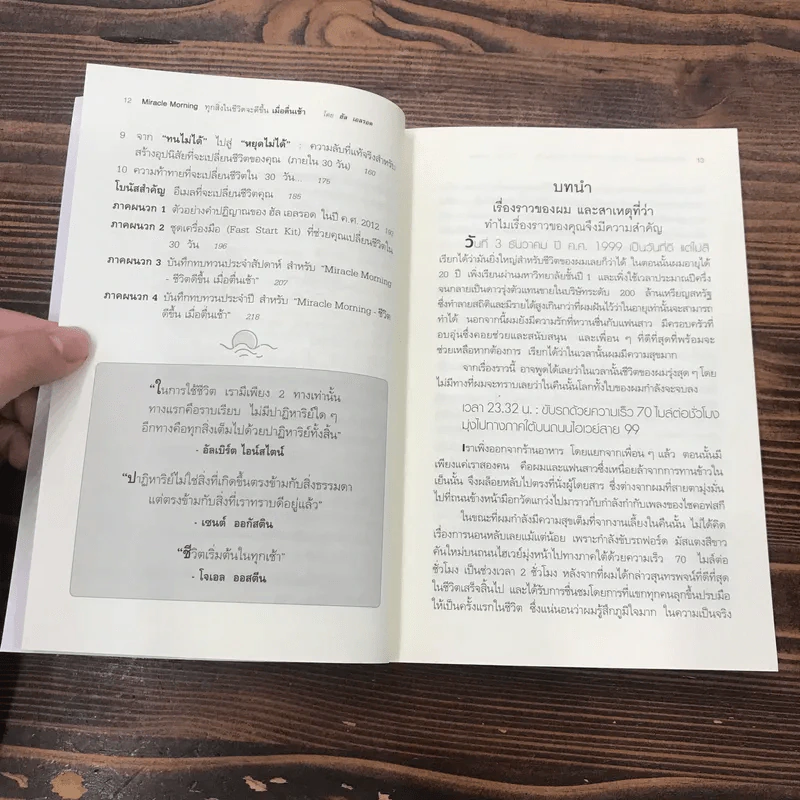 12 Miracle Morning ทุกสิ่งในชีวิตจะดีขึ้น เมื่อตื่นเช้า โดย ฮัล เอลรอด
9 จาก “ทนไม่ได้” ไปสู่ “หยุดไม่ได้” : ความลับที่แท้จริงสำหรับ
สร้างอุปนิสัยที่จะเปลี่ยนชีวิตของคุณ (ภายใน 30 วัน) 160
10 ความท้าทายที่จะเปลี่ยนชีวิตใน 30 วัน... 175
โบนัสสำคัญ อีเมลที่จะเปลี่ยนชีวิตคุณ 185
ภาคผนวก 1 ตัวอย่างคำปฏิญาณของ ฮัล เอลรอด ในปี ค.ศ. 2012 193
ภาคผนวก 2 ชุดเครื่องมือ (Fast Start Kit) ที่ช่วยคุณเปลี่ยนชีวิตใน
30 วัน 196
ภาคผนวก 3 บันทึกทบทวนประจำสัปดาห์ สำหรับ “Miracle Morning
- ชีวิตดีขึ้น เมื่อตื่นเช้า” 207
ภาคผนวก 4 บันทึกทบทวนประจำปี สำหรับ “Miracle Morning - ชีวิต
ดีขึ้น เมื่อตื่นเช้า” 218
“ในการใช้ชีวิต เรามีเพียง 2 ทางเท่านั้น
ทางแรกคือราบเรียบ ไม่มีปาฏิหาริย์ใด ๆ
อีกทางคือทุกสิ่งเต็มไปด้วยปาฏิหาริย์ทั้งสิ้น”
- อัลเบิร์ต ไอน์สไตน์
“ปาฏิหาริย์ไม่ใช่สิ่งที่เกิดขึ้นตรงข้ามกับสิ่งธรรมดา
แต่ตรงข้ามกับสิ่งที่เราทราบดีอยู่แล้ว”
- เซนต์ ออกัสติน
“ชีวิตเริ่มต้นในทุกเช้า”
- โจเอล ออสตีน
13
บทนำ
เรื่องราวของผม และสาเหตุที่ว่า
ทำไมเรื่องราวของคุณจึงมีความสำคัญ
วันที่ 3 ธันวาคม ปี ค.ศ. 1999 เป็นวันที่ดี แต่ไม่สิ
เรียกได้ว่ามันยิ่งใหญ่สำหรับชีวิตของผมเลยก็ว่าได้ ในตอนนั้นผมอายุได้
20 ปี เพิ่งเรียนผ่านมหาวิทยาลัยชั้นปี 1 และเพิ่งใช้เวลาประมาณปีครึ่ง
จนกลายเป็นดาวรุ่งตัวแทนขายในบริษัทระดับ 200 ล้านเหรียญสหรัฐ
ซึ่งทำลายสถิติและมีรายได้สูงเกินกว่าที่ผมฝันไว้ว่าในอายุเท่านั้นจะสามารถ
ทำได้ นอกจากนี้ผมยังมีความรักที่หวานชื่นกับแฟนสาว มีครอบครัวที่
อบอุ่นซึ่งคอยช่วยและสนับสนุน และเพื่อน ๆ ที่ดีที่สุดที่พร้อมจะ
ช่วยเหลือหากต้องการ เรียกได้ว่าในเวลานั้นผมมีความสุขมาก
จากเรื่องราวนี้ อาจพูดได้เลยว่าในเวลานั้นชีวิตของผมรุ่งสุด ๆ โดย
ไม่มีทางที่ผมจะทราบเลยว่าในคืนนั้นโลกทั้งใบของผมกำลังจะจบลง
เวลา 23.32 น. : ขับรถด้วยความเร็ว 70 ไมล์ต่อชั่วโมง
มุ่งไปทางภาคใต้บนถนนไฮเวย์สาย 99
เราเพิ่งออกจากร้านอาหาร โดยแยกจากเพื่อน ๆ แล้ว ตอนนั้นมี
เพียงแค่เราสองคน คือผมและแฟนสาวซึ่งเหนื่อยล้าจากการทานข้าวใน
เย็นนั้น จึงผล็อยหลับไปตรงที่นั่งผู้โดยสาร ซึ่งต่างจากผมที่สายตามุ่งมั่น
ไปที่ถนนข้างหน้ามือกวัดแกว่งไปมาราวกับกำลังกำกับเพลงของไชคอฟสกี
ในขณะที่ผมกำลังมีความสุขเต็มที่จากงานเลี้ยงในคืนนั้น ไม่ได้คิด
เรื่องการนอนหลับเลยแม้แต่น้อย เพราะกำลังขับรถฟอร์ด มัสแตงสีขาว
คันใหม่บนถนนไฮเวย์มุ่งหน้าไปทางภาคใต้ด้วยความเร็ว 70 ไมล์ต่อ
ชั่วโมง เป็นช่วงเวลา 2 ชั่วโมง หลังจากที่ผมได้กล่าวสุนทรพจน์ที่ดีที่สุด
ในชีวิตเสร็จสิ้นไป และได้รับการชื่นชมโดยการที่แขกทุกคนลุกขึ้นปรบมือ
ให้เป็นครั้งแรกในชีวิต ซึ่งแน่นอนว่าผมรู้สึกภูมิใจมาก ในความเป็นจริง